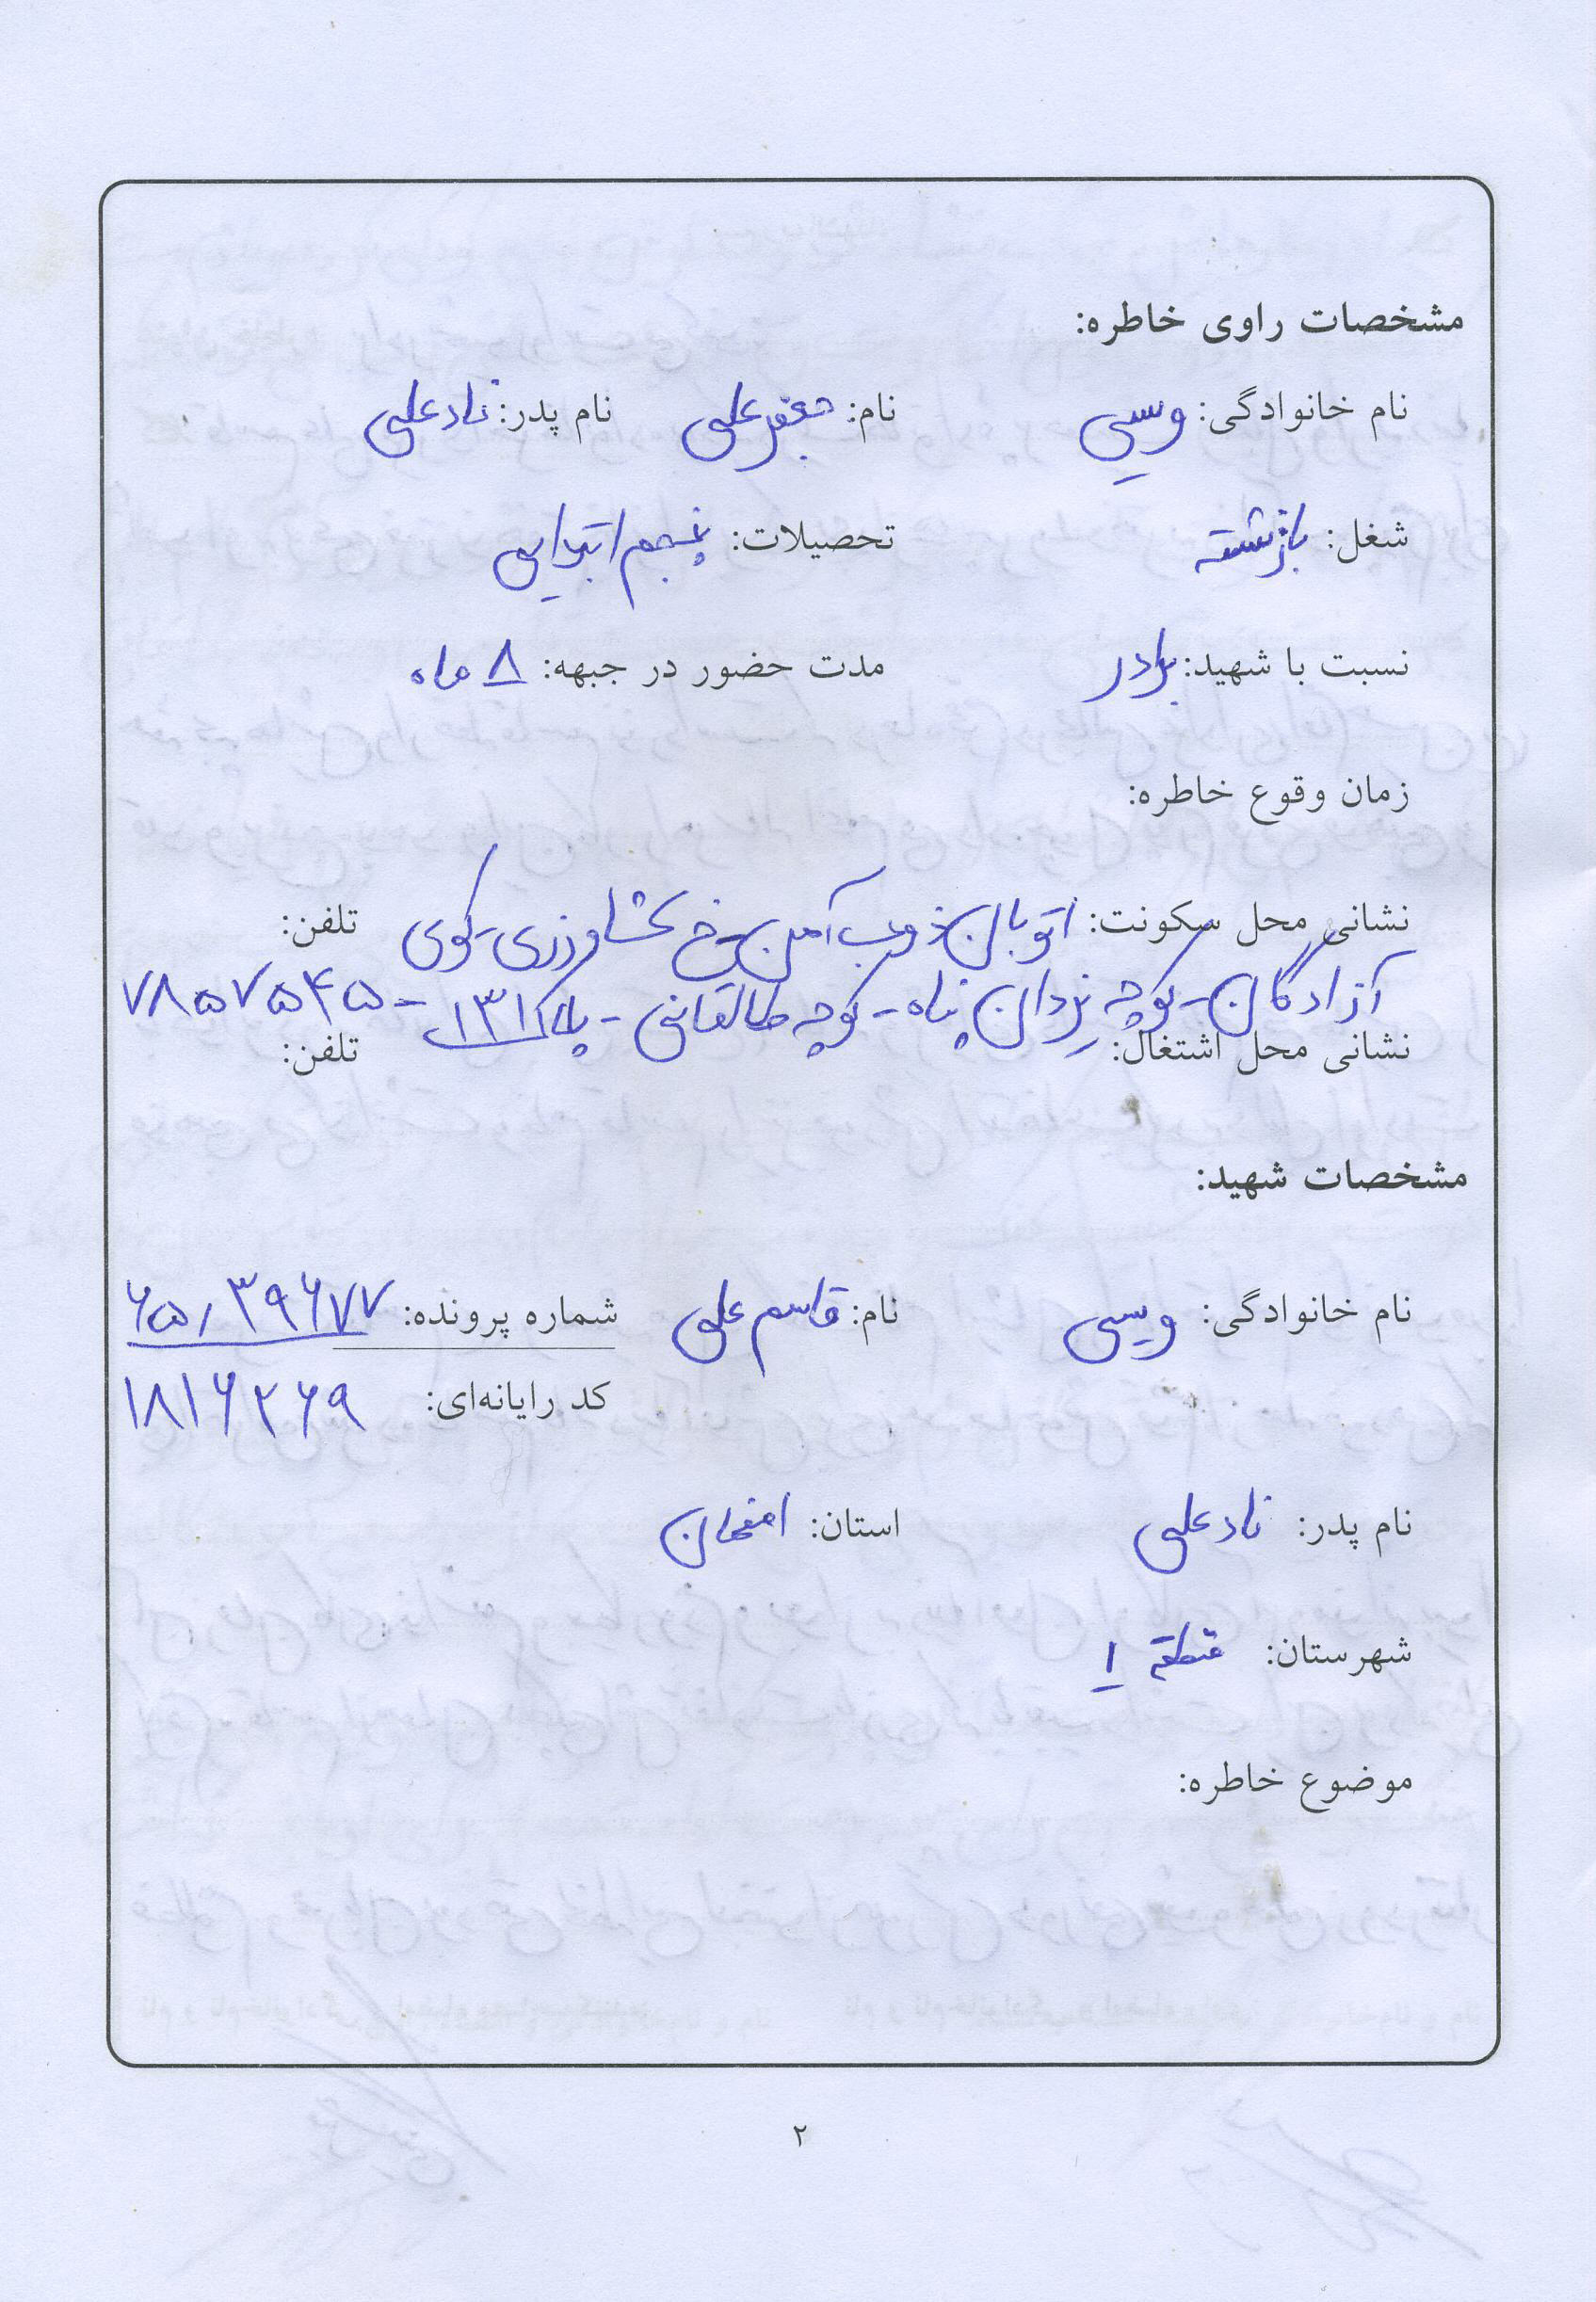 مشخصات راوی خاطره:
نام خانوادگی: ویسی نام: جعفرعلی نام پدر: نادعلی
شغل: بازنشسته تحصیلات: پنجم ابتدایی
نسبت با شهید: برادر مدت حضور در جبهه: ۸ ماه
زمان وقوع خاطره:
نشانی محل سکونت: اتوبان ذوب آهن - خ کشاورزی - کوی تلفن:
آزادگان - کوچه یزدان پناه - کوچه طالقانی - پلاک ۱۳۱ - ۷۸۵۷۵۴۵
نشانی محل اشتغال: تلفن:
مشخصات شهید:
نام خانوادگی: ویسی نام: قاسم علی شماره پرونده: ۶۵٫۳۹۶۷۷
کد رایانه‌ای: ۱۸۱۶۲۶۹
نام پدر: نادعلی استان: اصفهان
شهرستان: منطقه ۱
موضوع خاطره:
۲